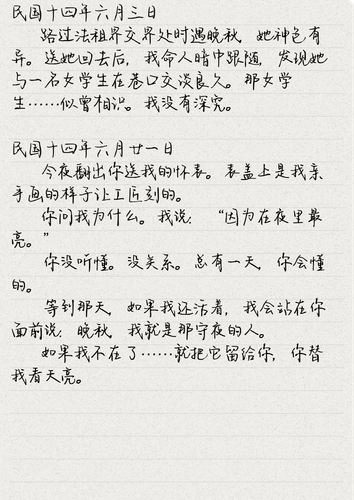 民国十四年六月三日
路过法租界交界处时遇晚秋，她神色有
异。送她回去后，我命人暗中跟随，发现她
与一名女学生在巷口交谈良久。那女学
生……似曾相识。我没有深究。
民国十四年六月廿一日
今夜翻出你送我的怀表。表盖上是我亲
手画的样子让工匠刻的。
你问我为什么。我说：“因为在夜里最
亮。”
你没听懂。没关系。总有一天，你会懂
的。
等到那天，如果我还活着，我会站在你
面前说：晚秋，我就是那守夜的人。
如果我不在了……就把它留给你，你替
我看天亮。